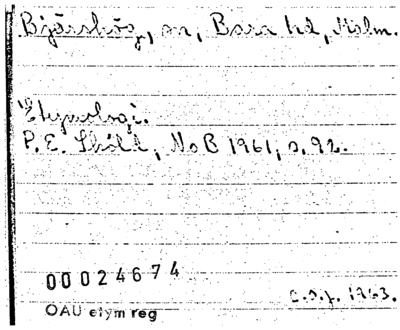 Bjärshög, sn, Bara hd, Malm.
Etymologi.
P. E. Sköld, NoB 1961, s. 92.
00024674
1963.
OAU etym reg